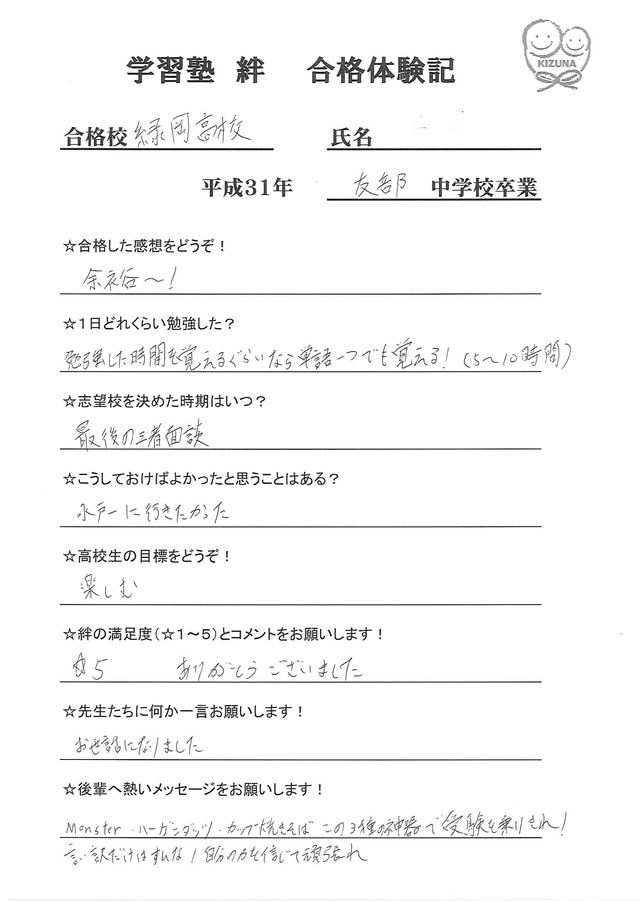 学習塾 絆 合格体験記
KIZUNA
合格校 緑岡高校 氏名
平成31年 友部 中学校卒業
☆合格した感想をどうぞ！
余裕〜！
☆１日どれくらい勉強した？
勉強した時間を覚えるぐらいなら単語一つでも覚える！(5〜10時間)
☆志望校を決めた時期はいつ？
最後の三者面談
☆こうしておけばよかったと思うことはある？
水戸一に行きたかった
☆高校生の目標をどうぞ！
楽しむ
☆絆の満足度(☆１〜５)とコメントをお願いします！
☆5 ありがとうございました
☆先生たちに何か一言お願いします！
お世話になりました
☆後輩へ熱いメッセージをお願いします！
Monster・ハーゲンダッツ・カップ焼きそば この3種の神器で受験を乗りきれ！
言い訳だけはすんな！自分の力を信じて頑張れ